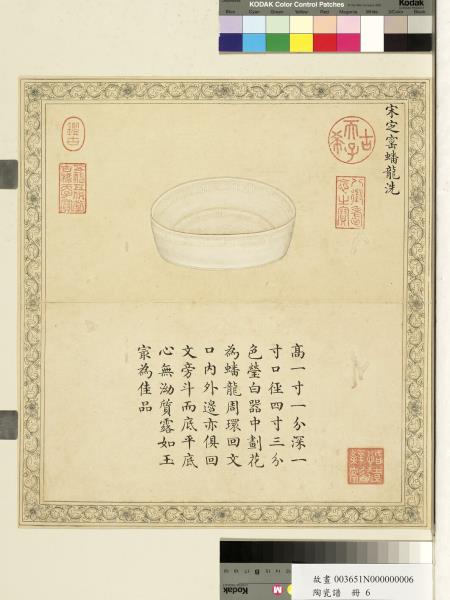 KODAK Color Control Patches
Kodak
Blue
Cyan
Green
Yellow
Red
Magenta
White
3/Color
Black
宋定窑蟠龍洗
古
希
天
子
鑑古
八徵耄
念之寶
高一寸一分深一
寸口徑四寸三分
色瑩白器中劃花
為蟠龍周環回文
口內外邊亦俱回
文旁斗而底平底
心無泑質露如玉
㝡為佳品
故畫 003651N000000006
陶瓷譜 冊 6